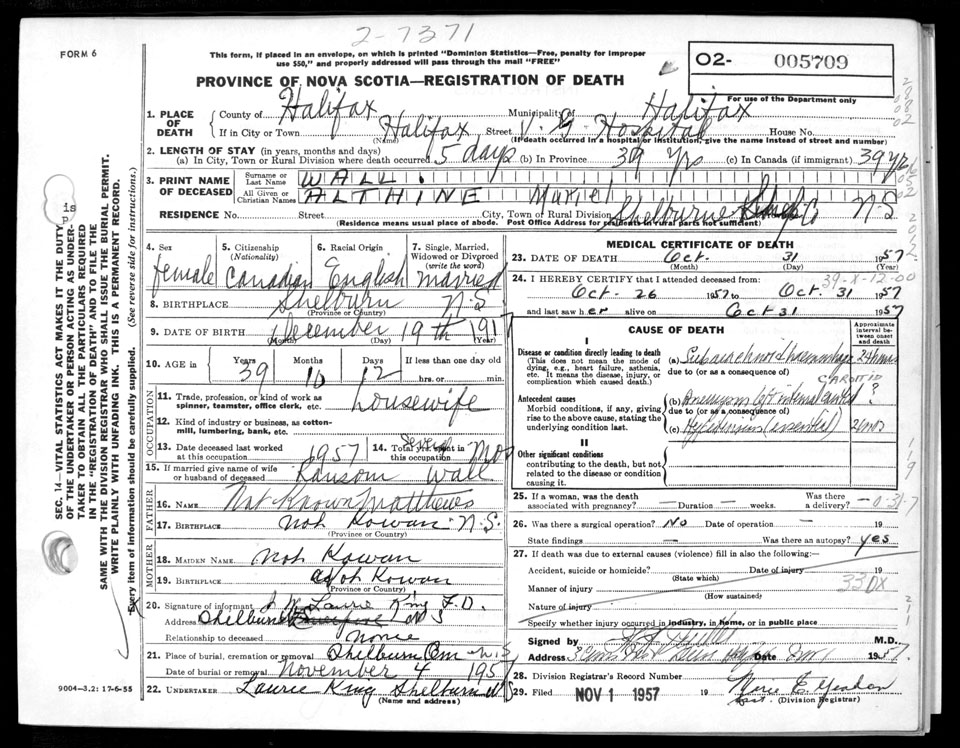 2-7371
FORM 6
This form, if placed in an envelope, on which is printed "Dominion Statistics—Free, penalty for improper use $50," and properly addressed will pass through the mail "FREE"
O2- 005709
For use of the Department only
PROVINCE OF NOVA SCOTIA—REGISTRATION OF DEATH
1. PLACE OF DEATH
County of Halifax Municipality of Halifax
If in City or Town Halifax Street V. G. Hospital House No.
(Name) (If death occurred in a hospital or institution, give the name instead of street and number)
2. LENGTH OF STAY (in years, months and days)
(a) In City, Town or Rural Division where death occurred 5 days (b) In Province 39 yrs (c) In Canada (if immigrant) 39 yrs
3. PRINT NAME OF DECEASED
Surname or Last Name WALL
All Given or Christian Names ALTHINE Muriel
RESIDENCE No. Street City, Town or Rural Division Shelburne Co N-S
(Residence means usual place of abode. Post Office Address for residents in rural parts not sufficient)
SEC. 14—VITAL STATISTICS ACT MAKES IT THE DUTY OF THE UNDERTAKER OR PERSON ACTING AS UNDERTAKER TO OBTAIN ALL THE PARTICULARS REQUIRED IN THE "REGISTRATION OF DEATH" AND TO FILE THE SAME WITH THE DIVISION REGISTRAR WHO SHALL ISSUE THE BURIAL PERMIT.
WRITE PLAINLY WITH UNFADING INK. THIS IS A PERMANENT RECORD.
Every item of information should be carefully supplied. (See reverse side for instructions.)
4. Sex female
5. Citizenship (Nationality) Canadian
6. Racial Origin English
7. Single, Married, Widowed or Divorced (write the word) married
8. BIRTHPLACE Shelburn N-S
(Province or Country)
9. DATE OF BIRTH December 19th 1917
(Month) (Day) (Year)
10. AGE in Years 39 Months 10 Days 12 If less than one day old hrs. or min.
OCCUPATION
11. Trade, profession, or kind of work as spinner, teamster, office clerk, etc. housewife
12. Kind of industry or business, as cotton-mill, lumbering, bank, etc.
13. Date deceased last worked at this occupation 1957
14. Total yrs. spent in this occupation
15. If married give name of wife or husband of deceased Ransom Wall
FATHER
16. NAME Not Known Matthews
17. BIRTHPLACE Not Kowan N.S.
(Province or Country)
MOTHER
18. MAIDEN NAME Not Kowan
19. BIRTHPLACE Not Kowan
(Province or Country)
20. Signature of informant Laurie King F.D.
Address Shelburne N S
Relationship to deceased None
21. Place of burial, cremation or removal Shelburn Cem N-S
Date of burial or removal November 4 1957
22. UNDERTAKER Laurie King Shelburn N S
(Name and address)
9004-3.2: 17-6-55
MEDICAL CERTIFICATE OF DEATH
23. DATE OF DEATH Oct. 31 1957
(Month) (Day) (Year)
39-X-12-00
24. I HEREBY CERTIFY that I attended deceased from:
Oct. 26 1957 to Oct. 31 1957
and last saw her alive on Oct 31 1957
CAUSE OF DEATH
Approximate interval between onset and death
I
Disease or condition directly leading to death
(This does not mean the mode of dying, e.g., heart failure, asthenia, etc. It means the disease, injury, or complication which caused death.)
(a) Subarachnoid haemorrhage 24 hours
due to (or as a consequence of)
CAROTID
Antecedent causes
Morbid conditions, if any, giving rise to the above cause, stating the underlying condition last.
(b) Aneurysm left internal carotid ?
due to (or as a consequence of)
(c) Hypertension (essential)
II
Other significant conditions contributing to the death, but not related to the disease or condition causing it.
25. If a woman, was the death associated with pregnancy? — Duration — weeks. Was there a delivery?
26. Was there a surgical operation? No Date of operation — 19
State findings — Was there an autopsy? yes
27. If death was due to external causes (violence) fill in also the following:—
Accident, suicide or homicide? Date of injury 19
(State which)
330X
Manner of injury
(How sustained)
Nature of injury
Specify whether injury occurred in industry, in home, or in public place
Signed by M.D.
Address Date 1957.
28. Division Registrar's Record Number
29. Filed NOV 1 1957 19
(Division Registrar)